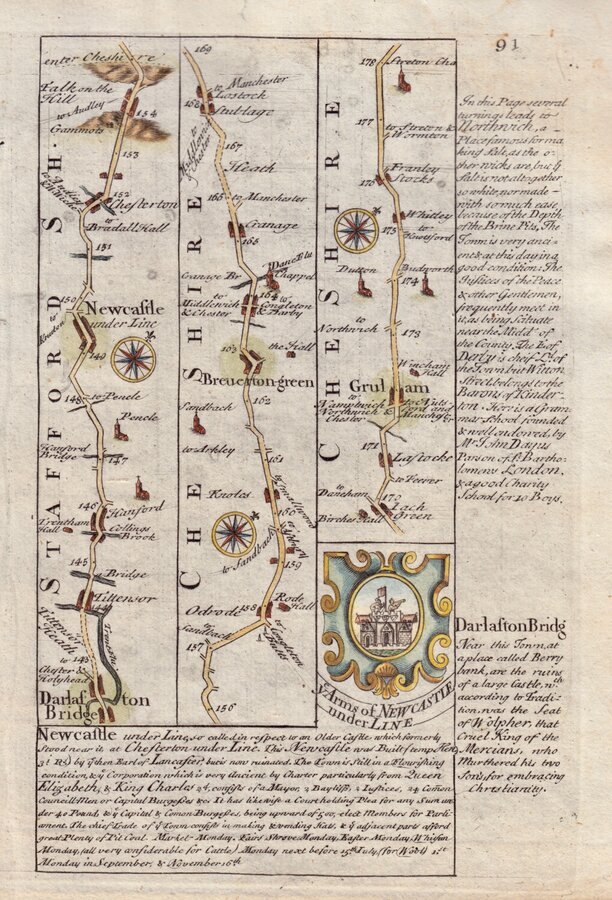 91
enter Cheshire
Talk on the
Hill
to Audley
154
Gammots
153
152
Chesterton
to
Bradall Hall
151
150
to
Newcastle
under Line
149
148
to Pencle
Pencle
Hanford
Bridge
147
146
Hanford
Trentham
Hall
Collings
Brook
145
a Bridge
Tittensor
144
Tittensor
Heath
143
to
Chester &
Holyhead
Darlaston
Bridge
STAFFORD SH.
169
to Manchester
Lostock
168
Stublage
to
167
Heath
166
to Manchester
Cranage
165
Dane Flu
Cranage Br
Chappel
to
Middlewich
& Chester
164
to
Congleton
& Harby
the Hall
163
Breuerton green
162
Sandbach
to Arkley
161
Knotes
to Smallwood
160
to Sandbach
159
Odrode
158
Rode
Hall
to
Sandbach
157
156
CHESHIRE
178
Streton Cha
177
to Streton &
Wormton
Franley
Stocks
176
Whitley
175
to
Knotsford
Dutton
Budworth
174
to
Northwich
173
Wincham
Hall
Grulham
to
Namptwich
Northwich &
Chester
to Nuts-
ford and
Manchestr.
171
Lastocke
to Peever
to
Daneham
170
Lach
Green
Birches Hall
CHESHIRE
Ye Arms of NEWCASTLE
under LINE
In this Page several
turnings leads to
Northwich, a
Place famous for ma
king Salt, as the o-
ther wicks are, but ye
Salt is not altogether
so white, nor made
with so much ease,
because of the Depth
of the Brine Pits, The
Town is very anci=
ent & at this day in a
good condition; The
Justices of the Peace
& other Gentlemen,
frequently meet in
it, as being scituate
near the Midd.e of
the County, The E. of
Derby is cheif Ld. of
the Town, but Witton
Street belongs to the
Barons of Kinder-
ton. Here is a Gram
mar School founded
& well endowed, by
Wm. Jn. Dayns
Parson of St. Bartho-
lomews London,
& a good Charity
School for 10 Boys.
Darlaston Bridg
Near this Town, at
a place called Berry
bank, are the ruins
of a large Castle, wch.
according to Tradi-
tion, was the Seat
of Wolpher, that
Cruel King of the
Mercians, who
Murthered his two
Sons, for embracing
Christianity.
Newcastle under Line, so called in respect to an Older Castle, which formerly
Stood near it at Chesterton under Line. This Newcastle was Built (temp. Hen.
3d. Rs.) by ye then Earl of Lancaster, but is now ruinated. The Town is Still in a Flourishing
condition, & ye Corporation which is very Ancient by Charter particularly from Queen
Elizabeth, & King Charles 2d. consists of a Mayor, 2 Bayliffs, 2 Justices, 24 Comon
Councill-Men or Capital Burgesses &c: It has likewise a Court holding Plea for any Sum un
der 40 Pound, & ye Capital & Comon Burgesses, being upward of 500, elect Members for Parli-
ament. The chief Trade of ye Town consists in making & vending Hats, & ye adjacent parts afford
great Plenty of Pit Coal. Market-Monday, Fairs Shrove Monday, Easter Monday, Whitson
Monday, (all very considerable for Cattle) Monday next before 15th. July, (for Wool) 1st.
Monday in September, & November 16th.